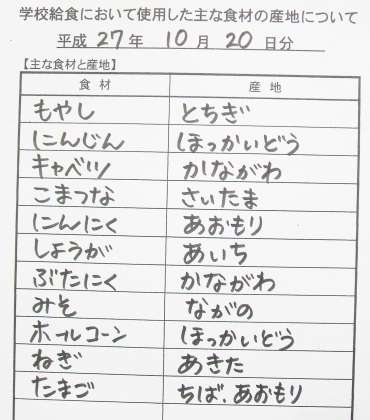 学校給食において使用した主な食材の産地について
平成 27 年 10 月 20 日分
【主な食材と産地】
食材 産地
もやし とちぎ
にんじん ほっかいどう
キャベツ かながわ
こまつな さいたま
にんにく あおもり
しょうが あいち
ぶたにく かながわ
みそ ながの
ホールコーン ほっかいどう
ねぎ あきた
たまご ちば、あおもり